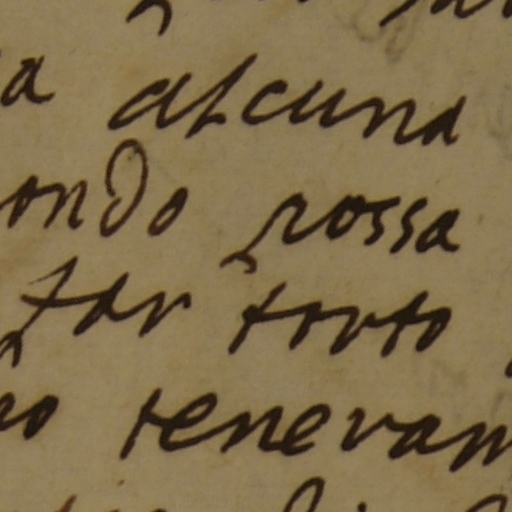 a alcuna
ondo possa
far torto
no tenevan